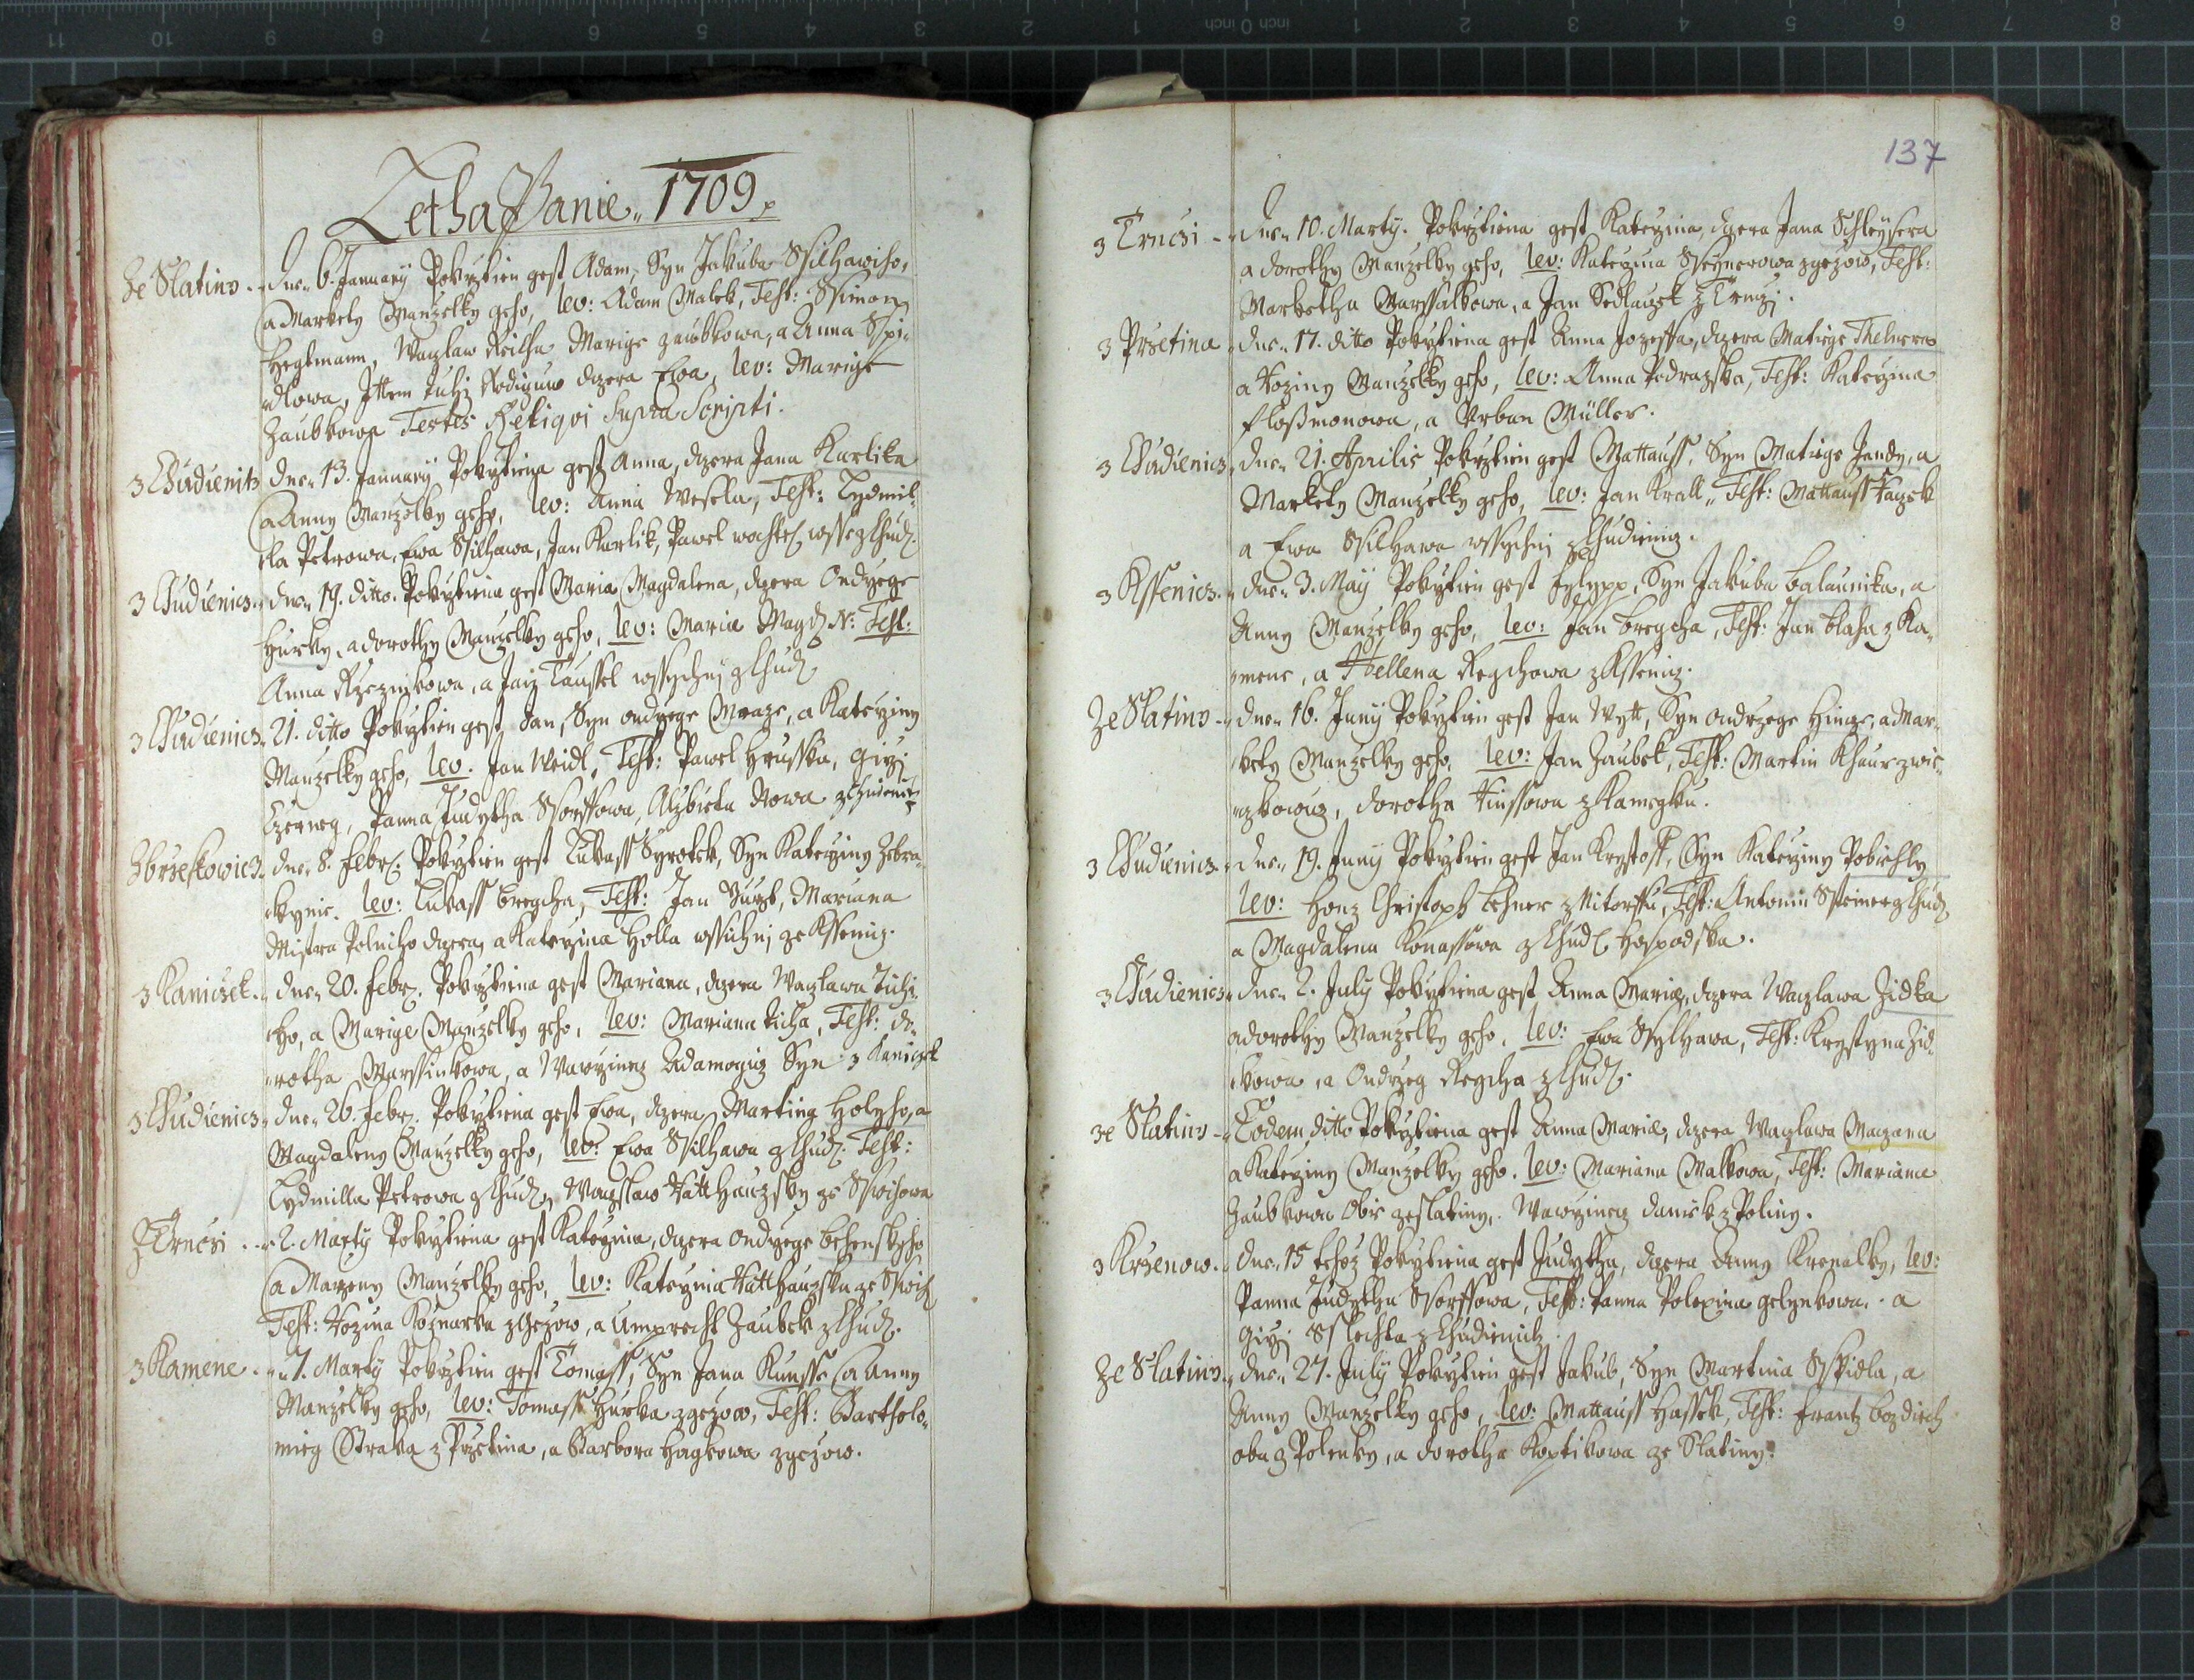 Letha Panie 1709
Ze Slatino dne 6. January Pokrztien gest Adam, Syn Jakuba Sstilhawiho,
a Markety Manzelky geho, lev: Adam Malek, Test: Ssimon
Hegkmann, Waczlaw Marige Zaubkowa, a Anna Sspi-
dlowa, Ittem tuhy Rodiguw dczera Ewa, lev: Marige
Zaubkowa Testes Reliqvi Supra Scripti.
z Chudienicz dne 13. January Pokrztiena gest Anna, dczera Jana Karlika
a Anny Manzelky geho, lev: Anna Wesela, Test: Lydmil-
la Petrowa, Ewa Sstilhawa, Jan Karlik, Pawel wsse z Chud.
z Chudienicz dne 19. ditto. Pokrztiena gest Maria Magdalena, dczera Ondrzege
Hurky, a dorothy Manzelky geho, lev: Maria Magd. N: Test:
Anna Rzeznikowa, a Taussel wssychnj z Chud.
z Chudienicz 21. ditto Pokrztien gest Jan, Syn ondrzege Mraze, a Katerziny
Manzelky geho, lev. Jan Weidl, Test: Pawel Hrusska, Girzj
Czerneg, Panna Judytha Sworssowa, Alzbieta Nowa z Chudenicz
Zbrseskowicz dne 8. Febr. Pokrztien gest Lukass Syrotek, Syn Katerziny Zebra-
kynie. lev: Lukass Bregcha, Test: Jan Mariana
Mistra Polniho dczera, a Katerzina Holla wssichnj ze Kssenicz.
z Kaniczek dne 20. Febr. Pokrztiena gest Mariana, dczera Waczlawa Tichi-
ho, a Marige Manzelky geho, lev: Mariana Ticha, Test: do-
rotha Marssinkowa, a Wawrzinecz Adamogicz Syn z Kaniczek
z Chudienicz dne 26. Febr. Pokrztiena gest Ewa, dczera Martina Holyho, a
Magdaleny Manzelky geho, lev: Ewa Sstilhawa z Chud. Test:
Lydmilla Petrowa z Chud. Waczlaw Katthauzsky ze Sswihowa
z Trnczi 2. Marty Pokrztiena gest Katerzina, dczera ondrzege Behenskyho
a Marzeny Manzelky geho, lev: Katerzina Katthauzska ze Sswih.
Test: Rozina Koznarka z Gezow, a Umprecht Zaubek z Chud.
z Kamene 7. Marty Pokrztien gest Tomass, Syn Jana Kunsse a Anny
Manzelky geho, lev: Tomass Hurka z gezow, Test: Bartholo-
mieg Straka z Przetina, a Barbora Hagkowa z gezow.
137
z Trnczi dne 10. Marty. Pokrztiena gest Katerzina, dczera Jana Schleysera
a dorothy Manzelky geho, lev: Katerzina Steynerowa z gezow, Test:
Marketha Marssalkowa, a Jan Sedlaczek z Trnczj.
z Prsetina dne 17. ditto Pokrztiena gest Anna Jozeffa, dczera Matiege Thelnera
a Roziny Manzelky geho, lev: Anna Podrazska, Test: Katerzina
Floßmonowa, a Vrban Müller.
z Chudienicz dne 21. Aprilis Pokrztien gest Mattauss, Syn Matiege Jandy, a
Markety Manzelky geho, lev: Jan Krall, Test: Mattauss Kaczek
a Ewa Sstilhawa wssychnj z Chudienicz.
z Kssenicz dne 3. Maij Pokrztien gest Fylypp, Syn Jakuba Balaunika, a
Anny Manzelky geho, lev: Jan Bregcha, Test: Jan Blaha z Ka-
mene, a Hellena Regchowa z Kssenicz.
Ze Slatino dne 16. Juny Pokrztien gest Jan Wytt, Syn ondrzege Hincze, a Mar-
kety Manzelky geho, lev: Jan Zaubek, Test: Martin Khaur z wie-
czkowicz, dorotha Kinssowa z Kamegku.
z Chudienicz dne 19. Juny Pokrztien gest Jan Krystoff, Syn Katerziny Pobiehly
lev: Honz Christoph Lehner z Test: Antonin Ssteiner z Chud.
a Magdalena Konassowa z Chud. Hospodska.
z Chudienicz dne 2. July Pokrztiena gest Anna Maria, dczera Waczlawa Zidka
a dorothy Manzelky geho, lev: Ewa Sstylhawa, Test: Krystyna Zid-
kowa, a Ondrzeg Regcha z Chud.
ze Slatino Eodem ditto Pokrztiena gest Anna Maria, dczera Waczlawa Maczana
a Katerziny Manzelky geho. lev: Mariana Malkowa, Test: Mariana
Zaubkowa Obie ze slatiny, Wawrzinecz daniek z Poliny.
z Krsenow dne 15 tehoz Pokrztiena gest Judytha, dczera Anny Kronalky, lev:
Panna Judytha Sworssowa, Test: Panna Polexina gelynkowa, a
Girzj Sslechta z Chudienicz.
Ze Slatino dne 27. July Pokrztien gest Jakub, Syn Martina Sspidla, a
Anny Manzelky geho, lev: Mattauss Hassek, Test: Frantz Bozdiech
oba z Polenky, a dorotha Koptikowa ze Slatiny.